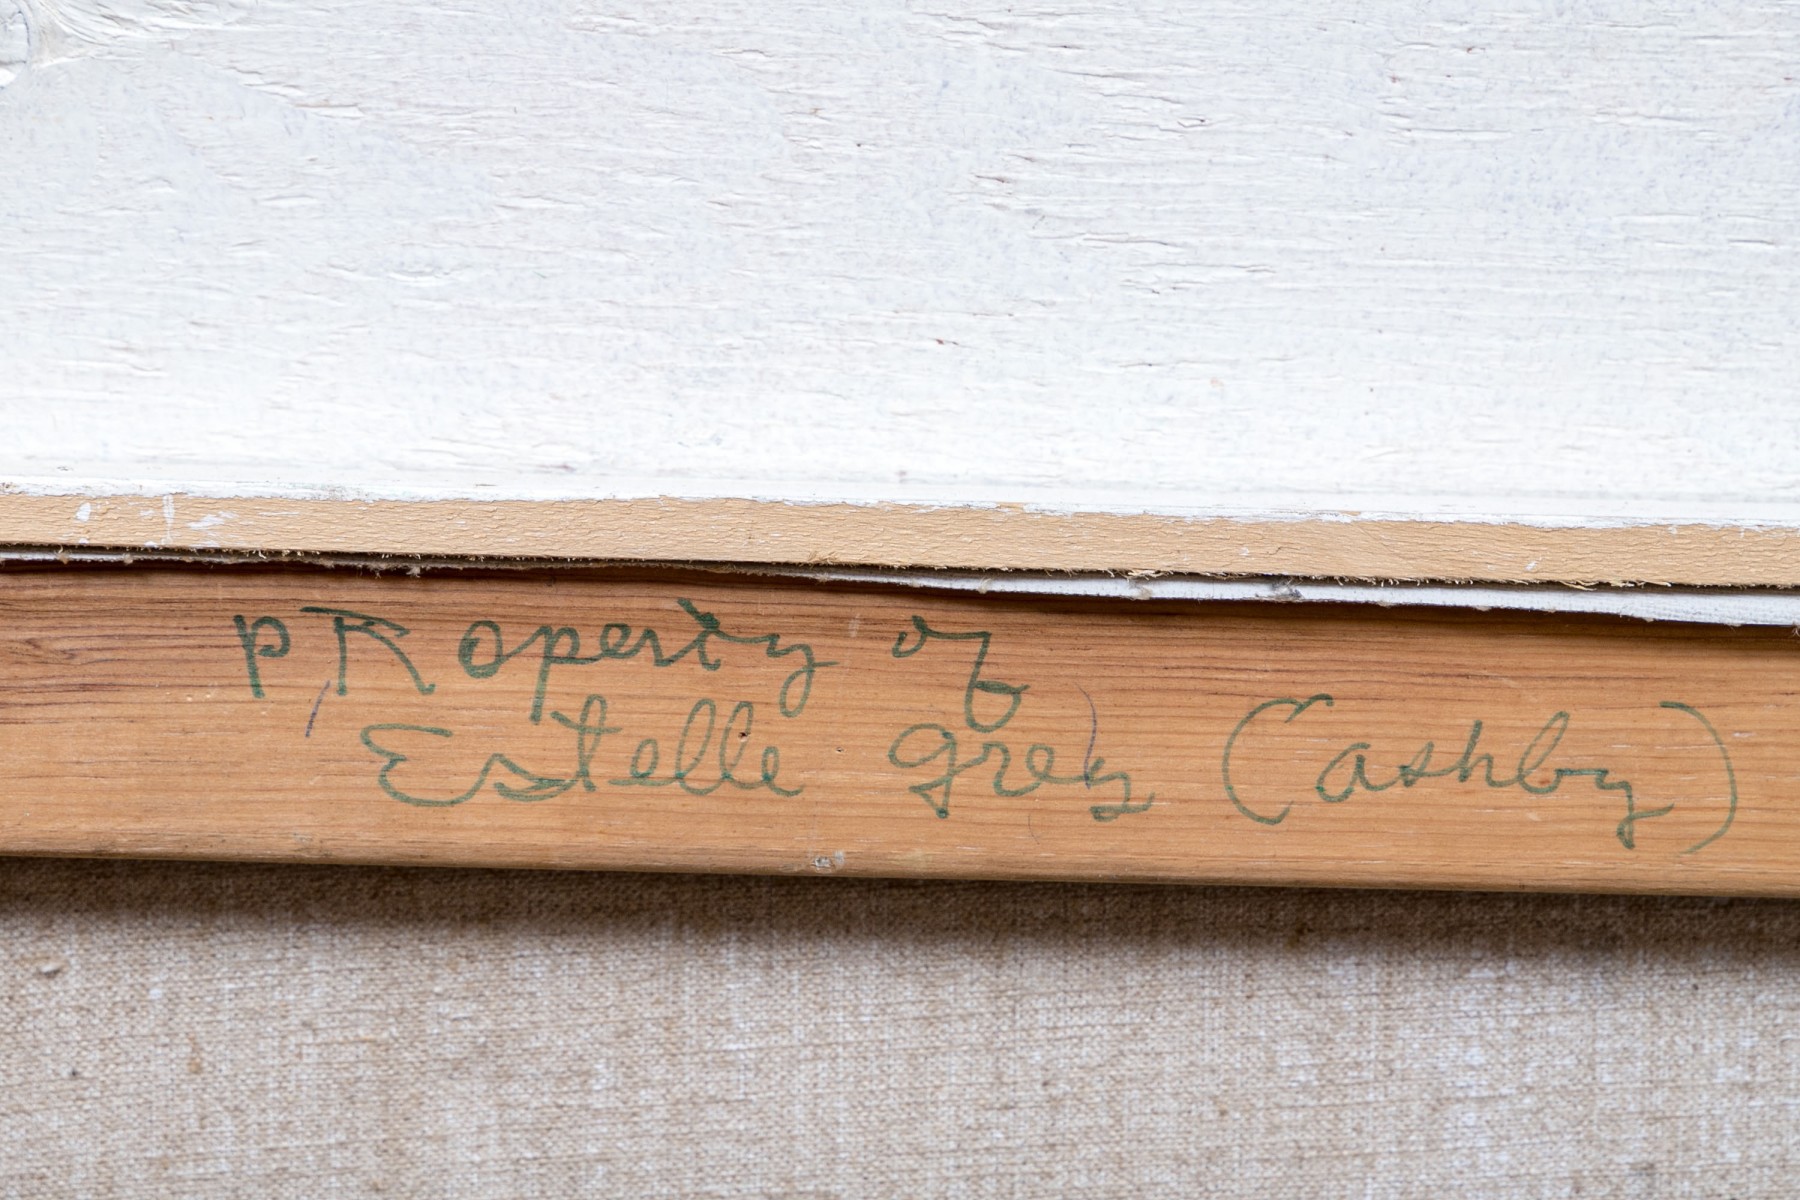 pRoperty of
Estelle Grey (ashby)